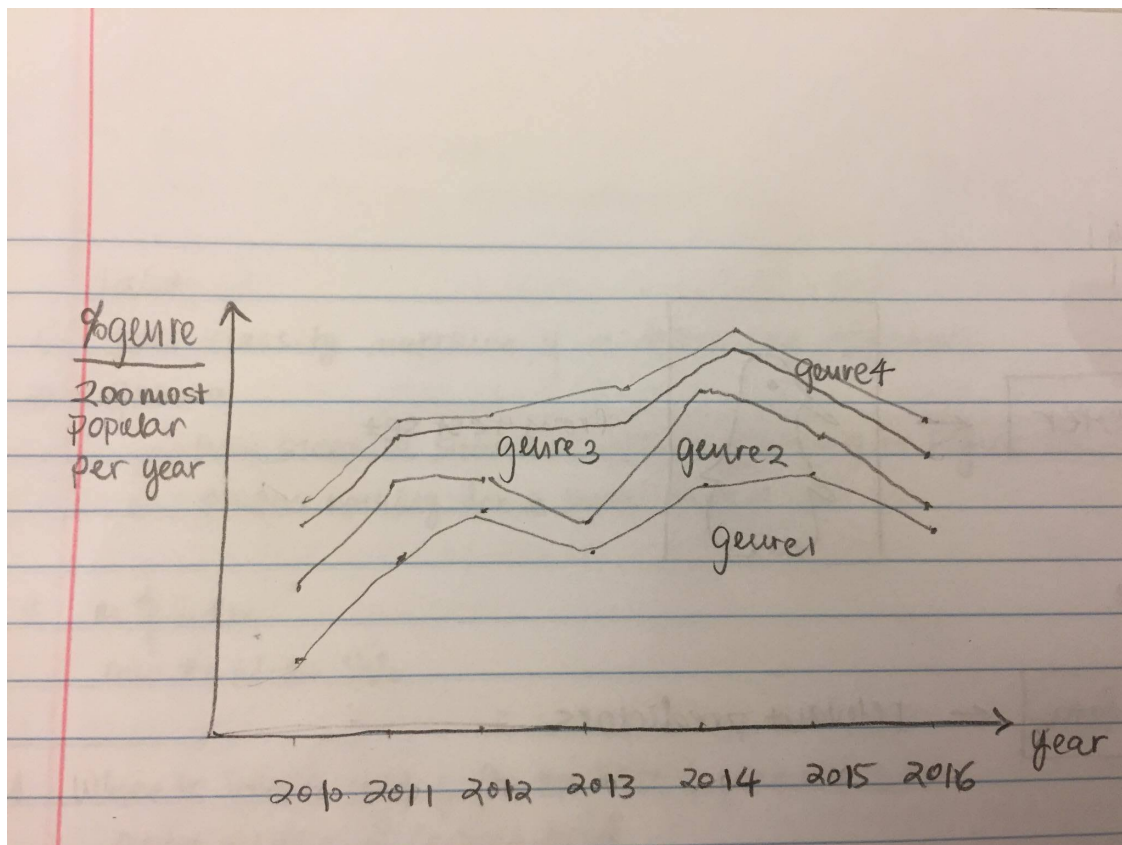 %genre
200 most
popular
per year
genre4
genre3
genre2
genre1
year
2010 2011 2012 2013 2014 2015 2016